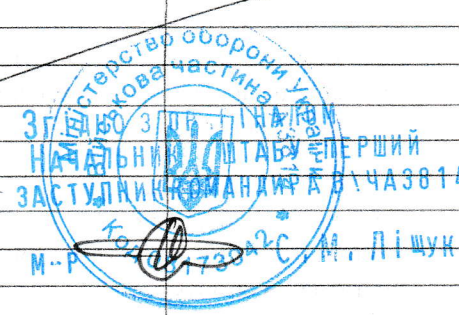 Міністерство оборони України
Військова частина
Згідно з оригіналом
НАЧАЛЬНИК ШТАБУ ПЕРШИЙ
ЗАСТУПНИК КОМАНДИРА В\ЧА3814
М-Р С.М. Ліщук
Код